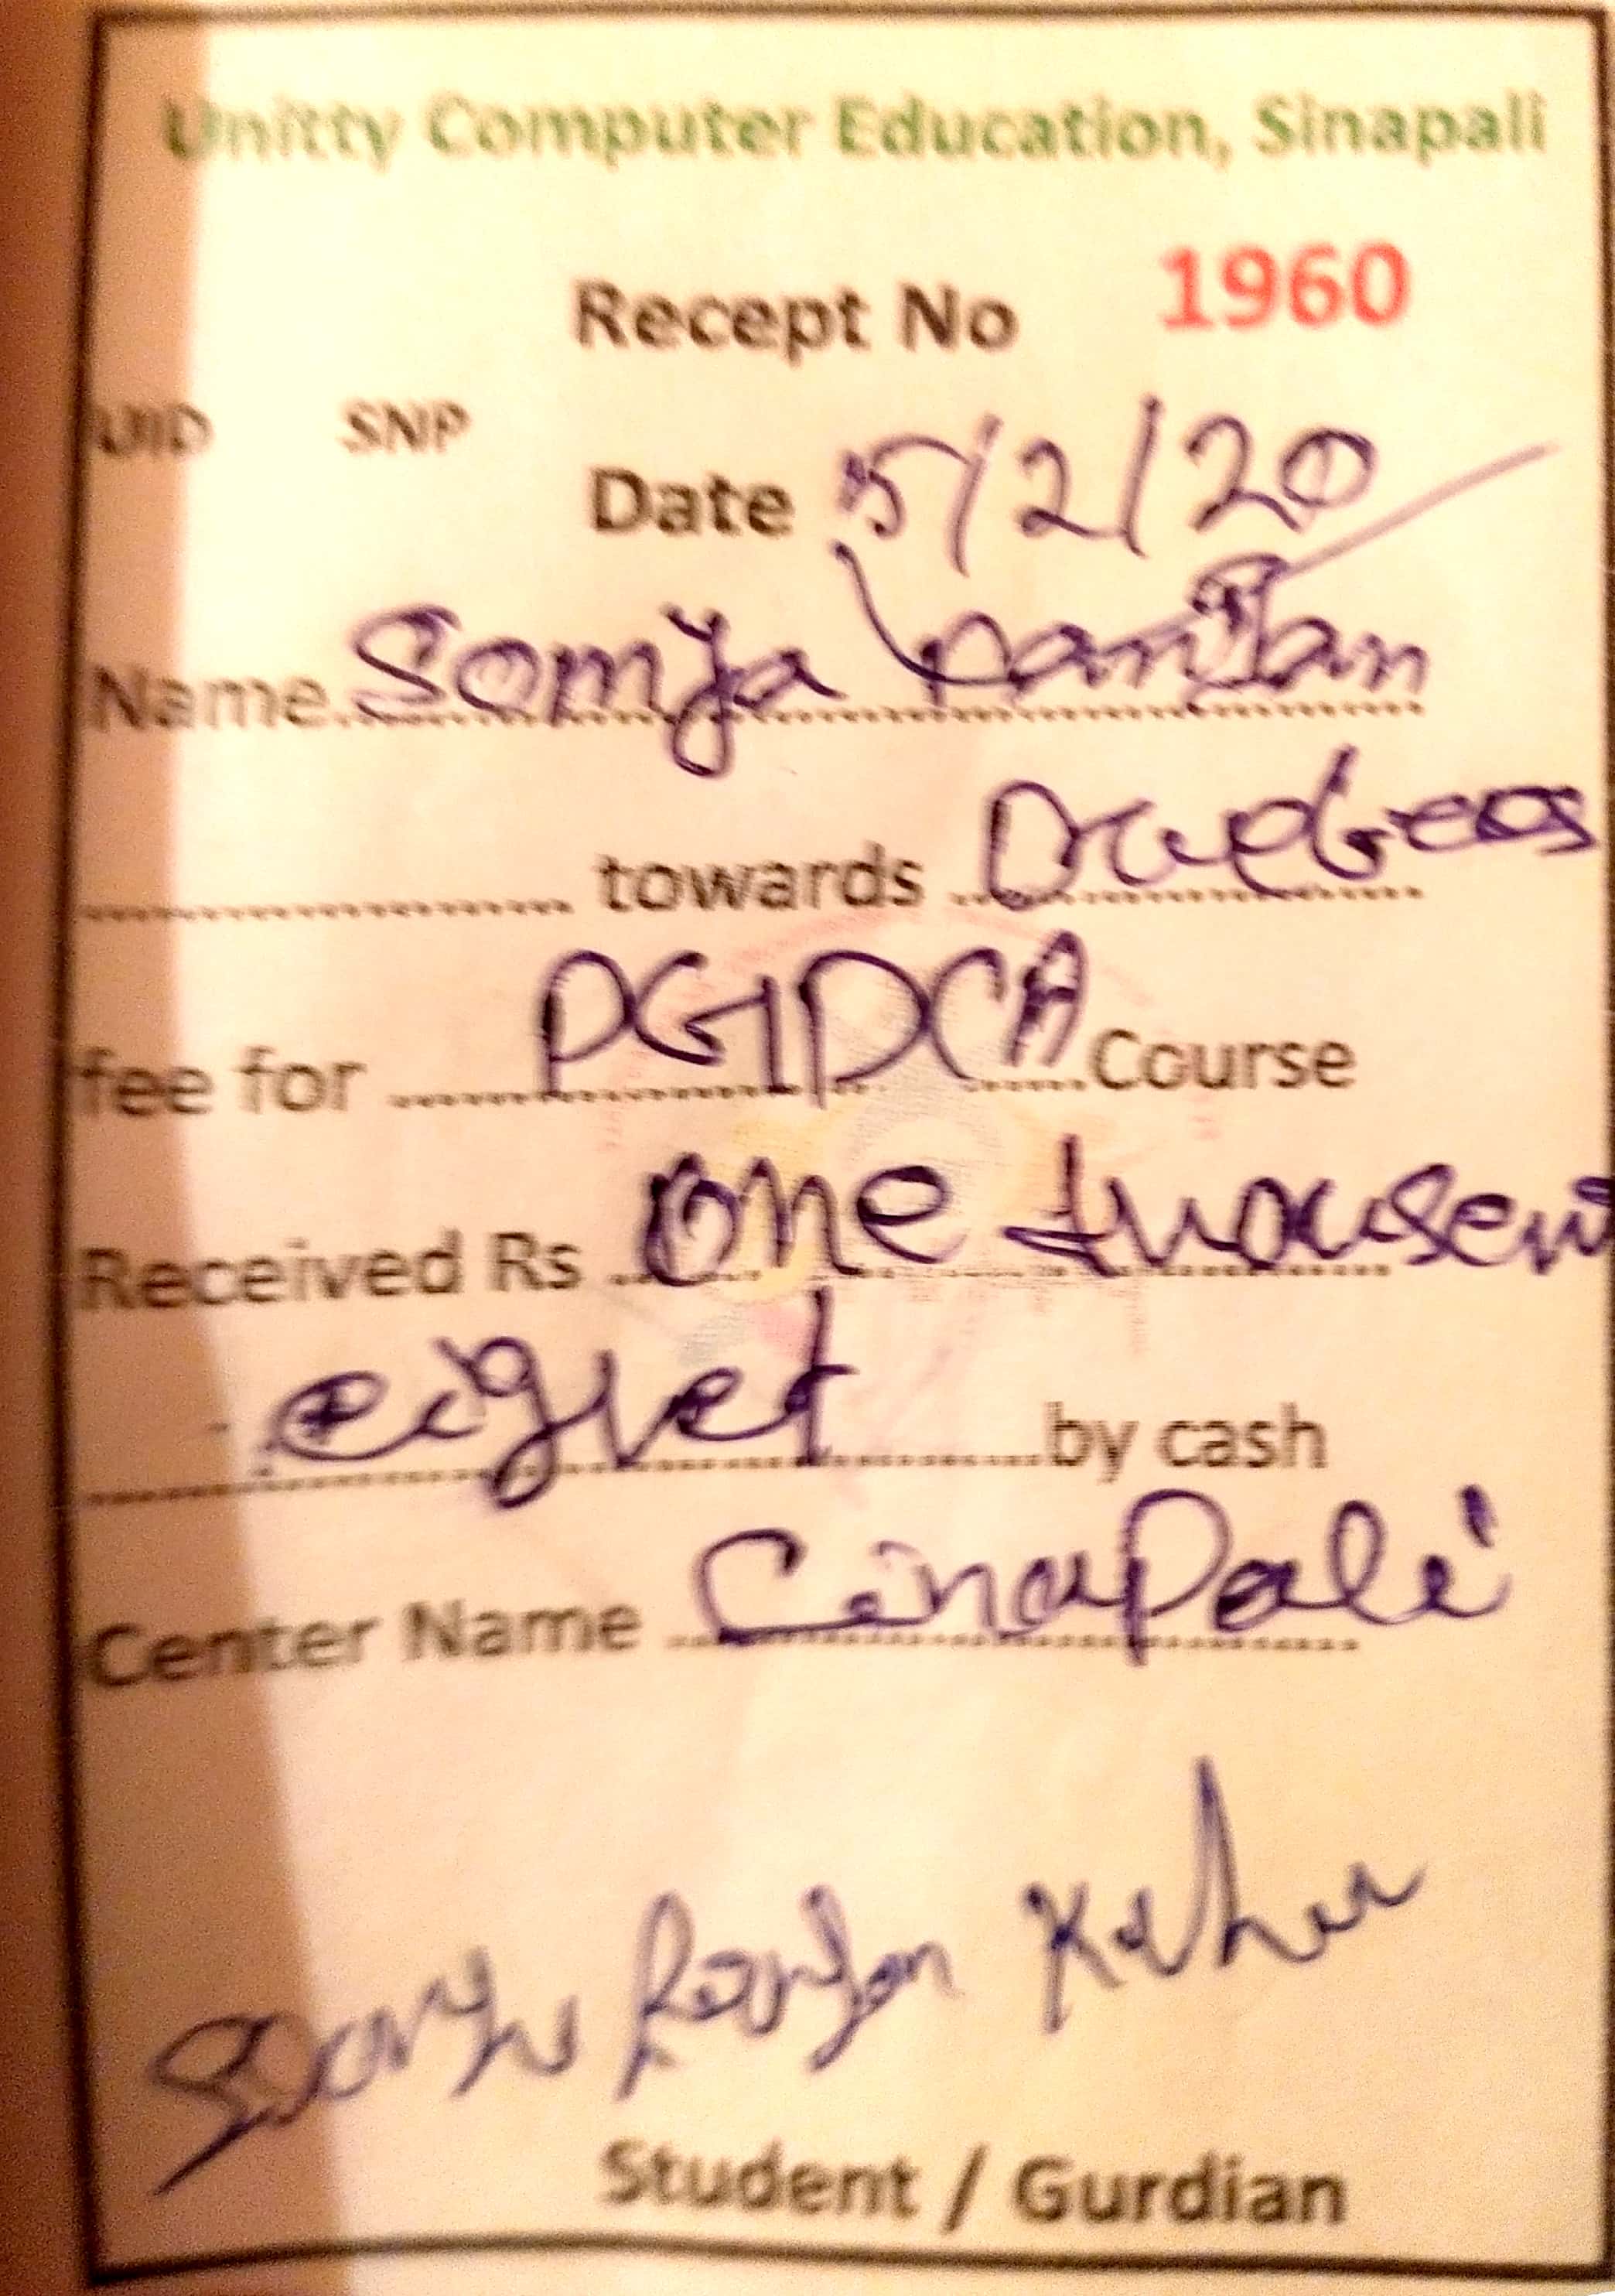 Unitty Computer Education, Sinapali
Recept No 1960
UID SNP
Date 5/2/20
Name Somya Ranjan
towards
fee for PGDCA Course
Received Rs one thousend
eighet by cash
Center Name Cinapali
Ranjan
Student / Gurdian